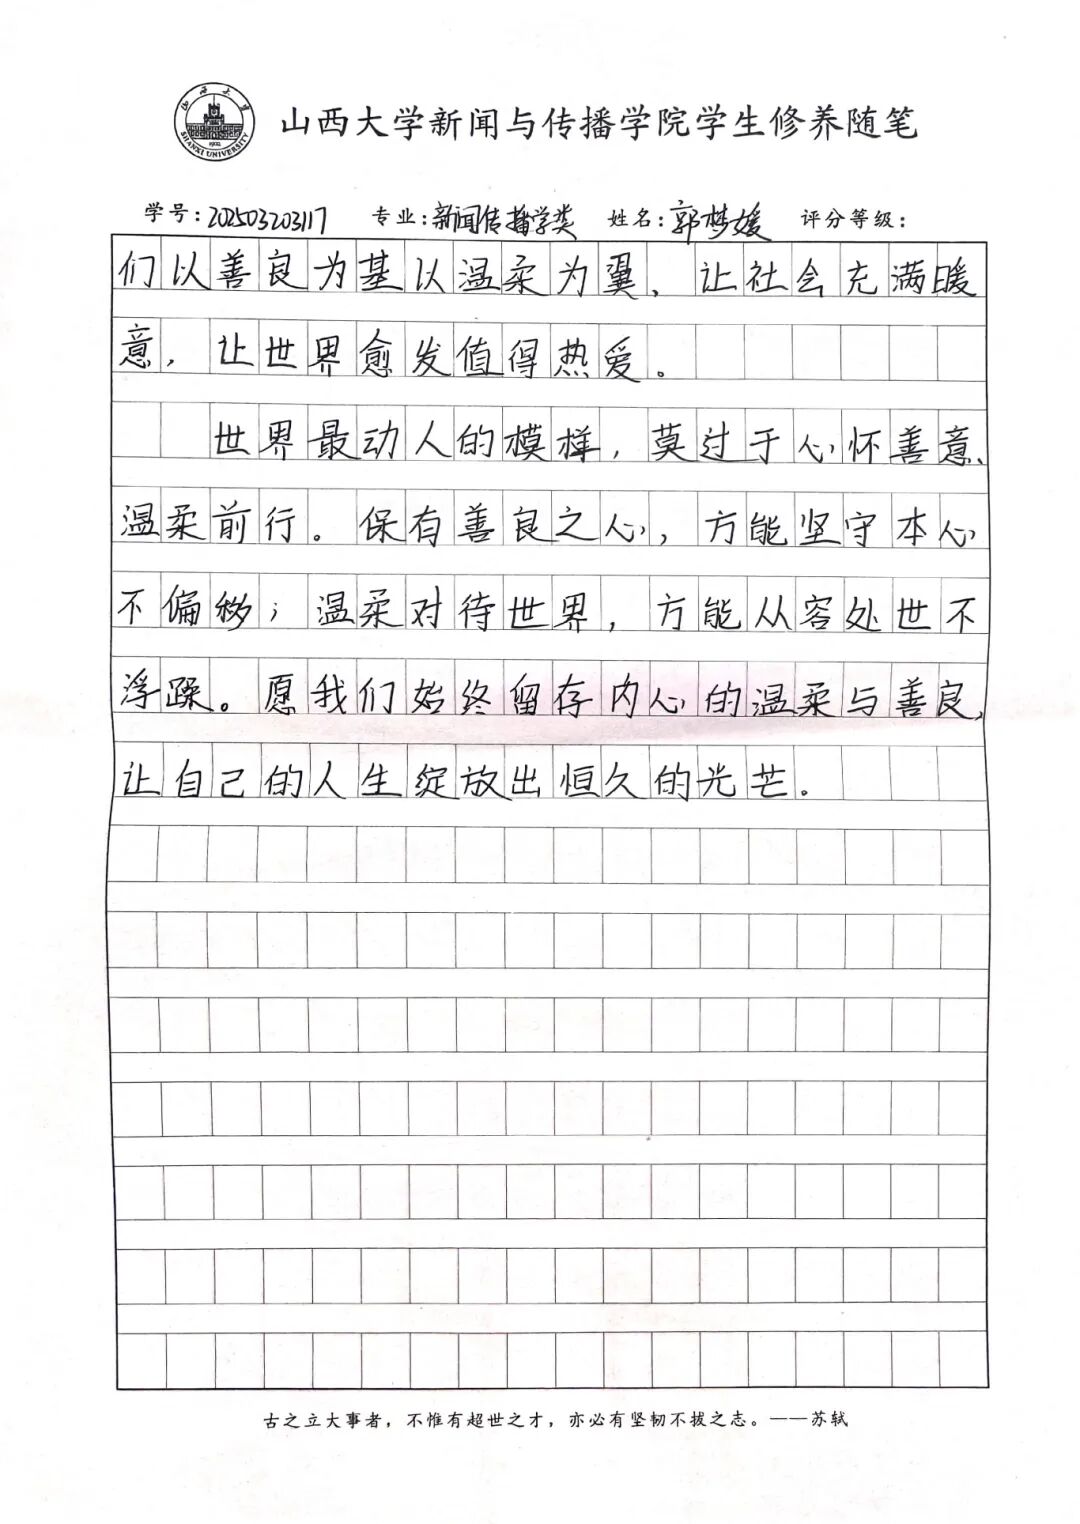 山西大学
SHANXI UNIVERSITY
1902
山西大学新闻与传播学院学生修养随笔
学号:202503203117 专业:新闻传播学类 姓名:郭梦媛 评分等级:
们以善良为基以温柔为翼,让社会充满暖
意,让世界愈发值得热爱。
世界最动人的模样,莫过于心怀善意、
温柔前行。保有善良之心,方能坚守本心
不偏移;温柔对待世界,方能从容处世不
浮躁。愿我们始终留存内心的温柔与善良,
让自己的人生绽放出恒久的光芒.
古之立大事者,不惟有超世之才,亦必有坚韧不拔之志。——苏轼